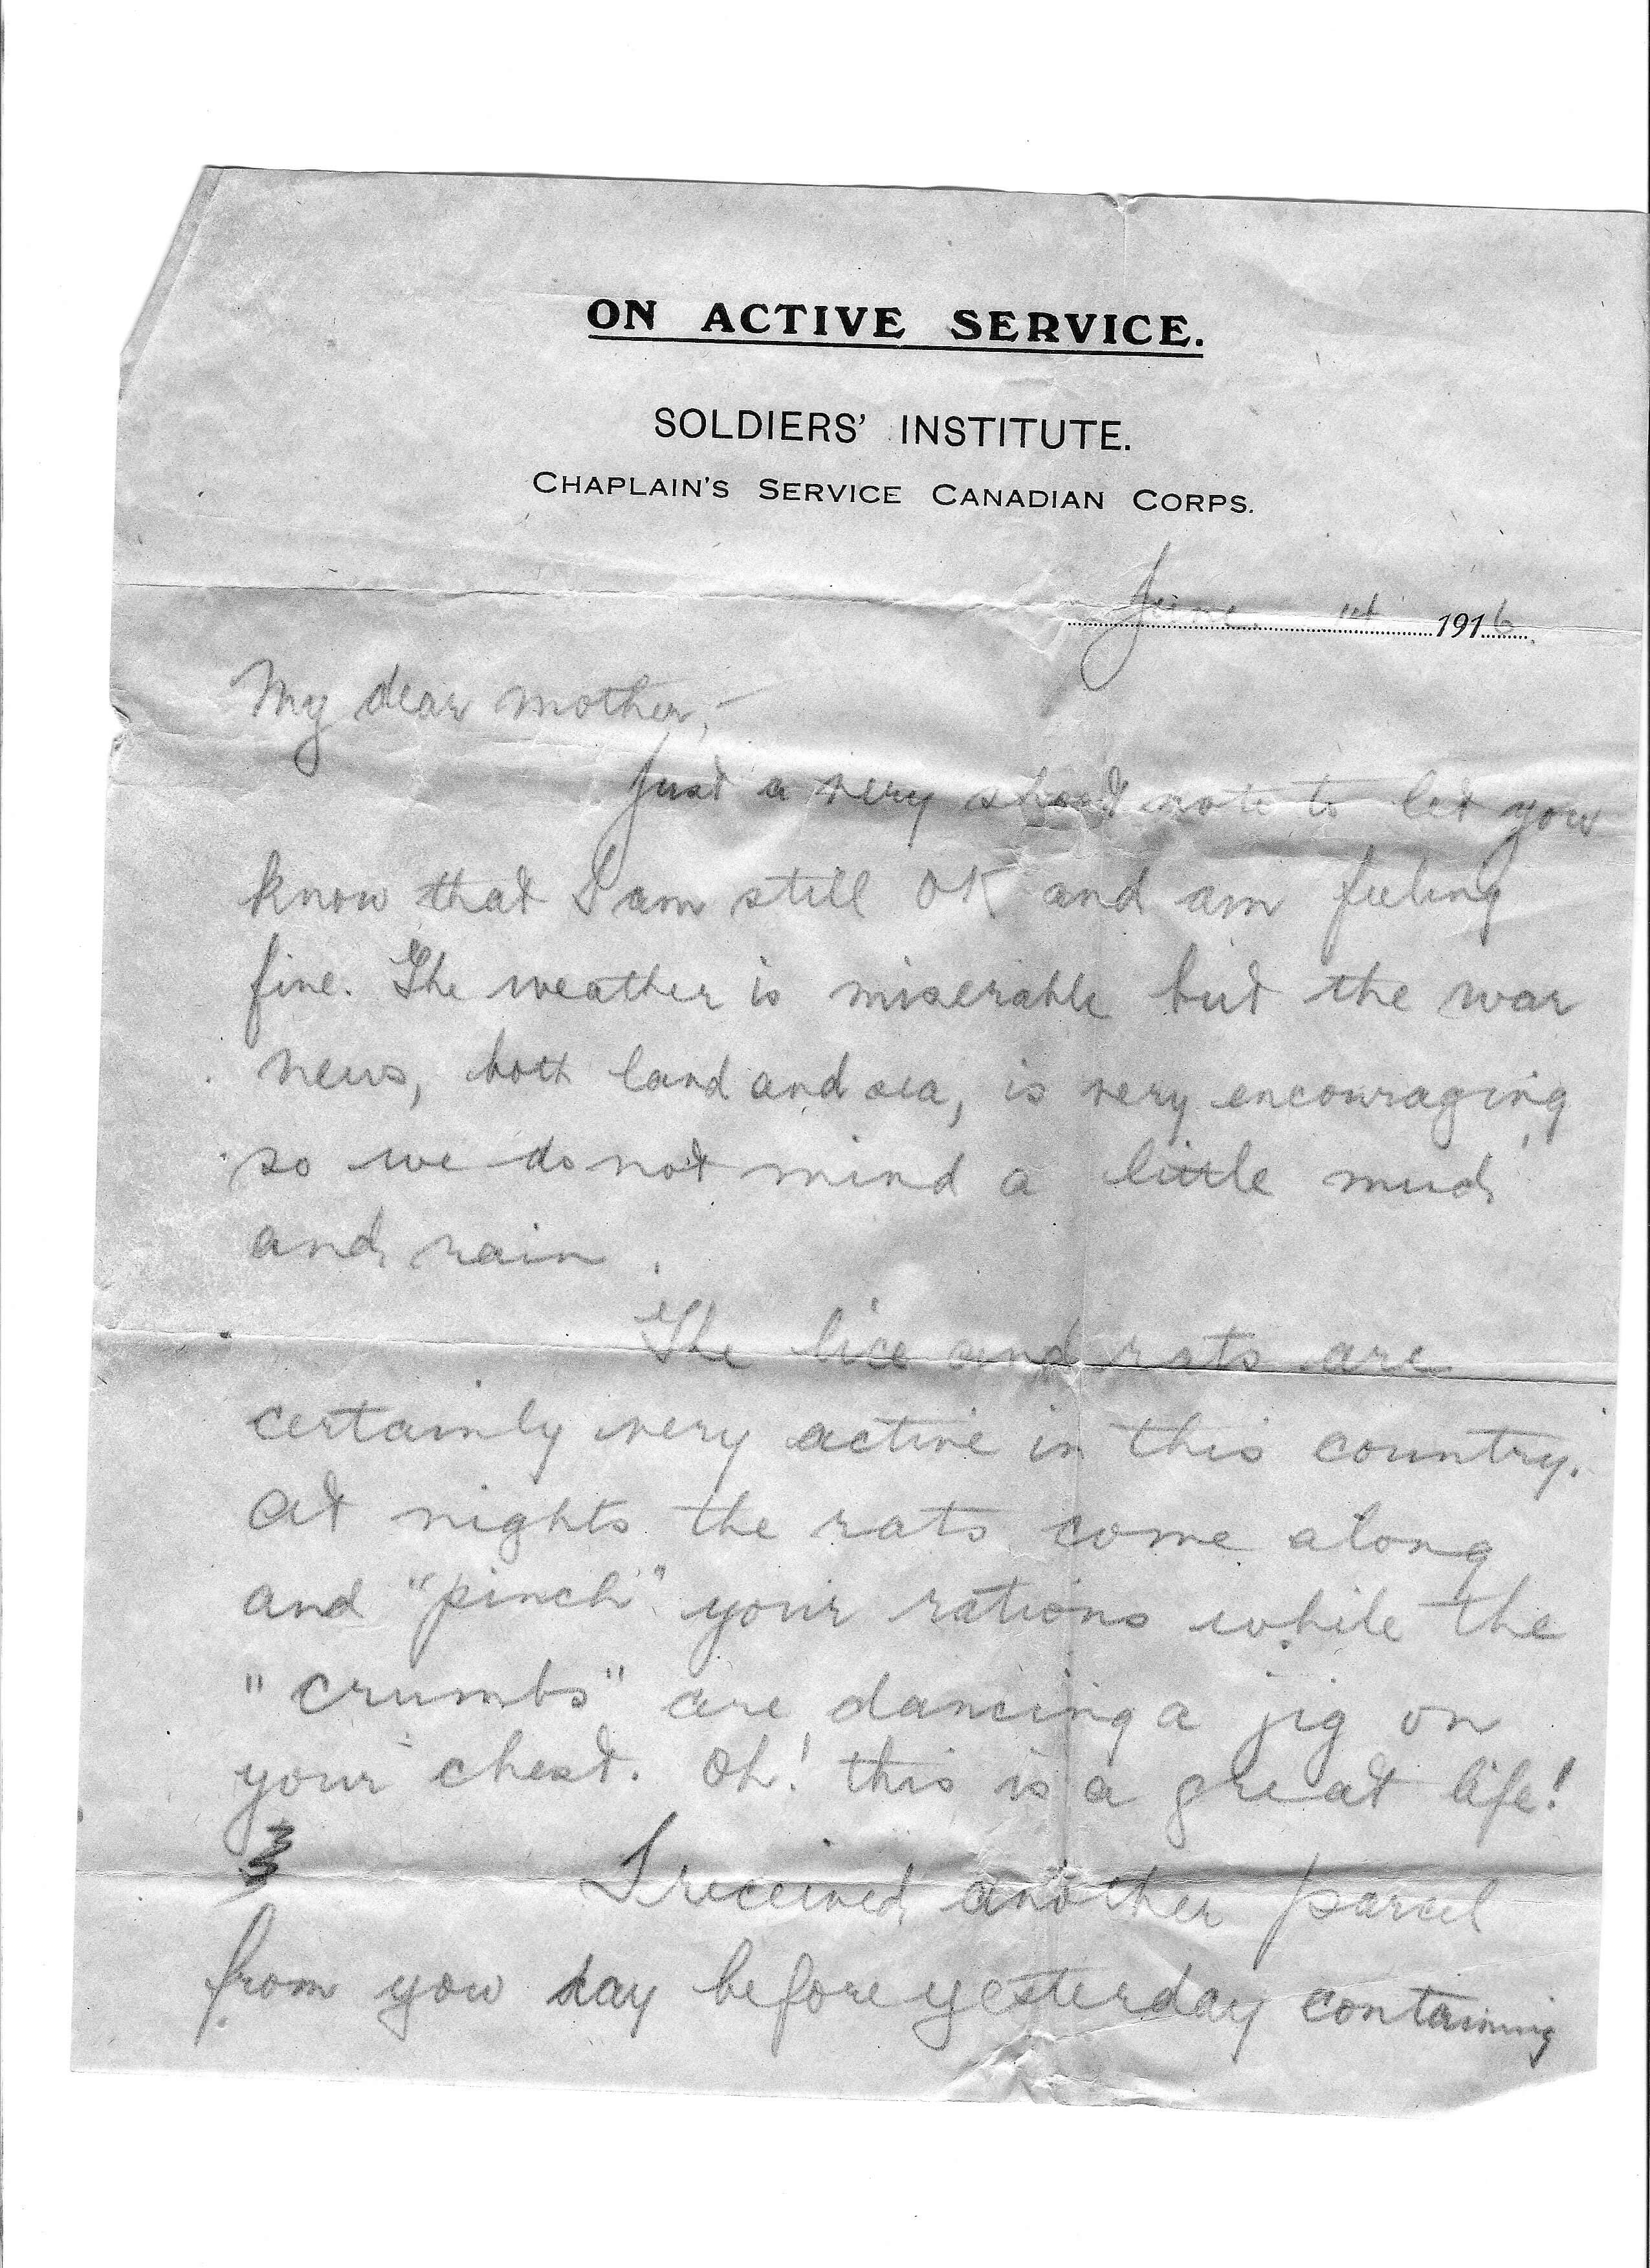 ON ACTIVE SERVICE.
SOLDIERS' INSTITUTE.
CHAPLAIN'S SERVICE CANADIAN CORPS.
June. 14 1916.
My dear mother,-
Just a very short note to let you
know that I am still OK and am feeling
fine. The weather is miserable but the war
news, both land and sea, is very encouraging
so we do not mind a little mud
and rain.
The lice and rats are
certainly very active in this country.
At nights the rats come along
and "pinch" your rations while the
"crumbs" are dancing a jig on
your chest. Oh! this is a great life!
I received another parcel
from you day before yesterday containing